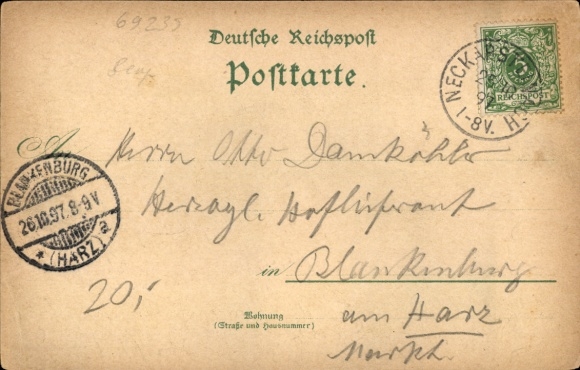 69235
Deutsche Reichspost
Postkarte.
REICHSPOST
1-8V.
An Herrn Otto Damköhler
BLANKENBURG
26.10.97. 8-9 V
* (HARZ) a
Herzogl. Hoflieferant
in Blankenburg
20,-
Wohnung
(Straße und Hausnummer)
am Harz
Markt.